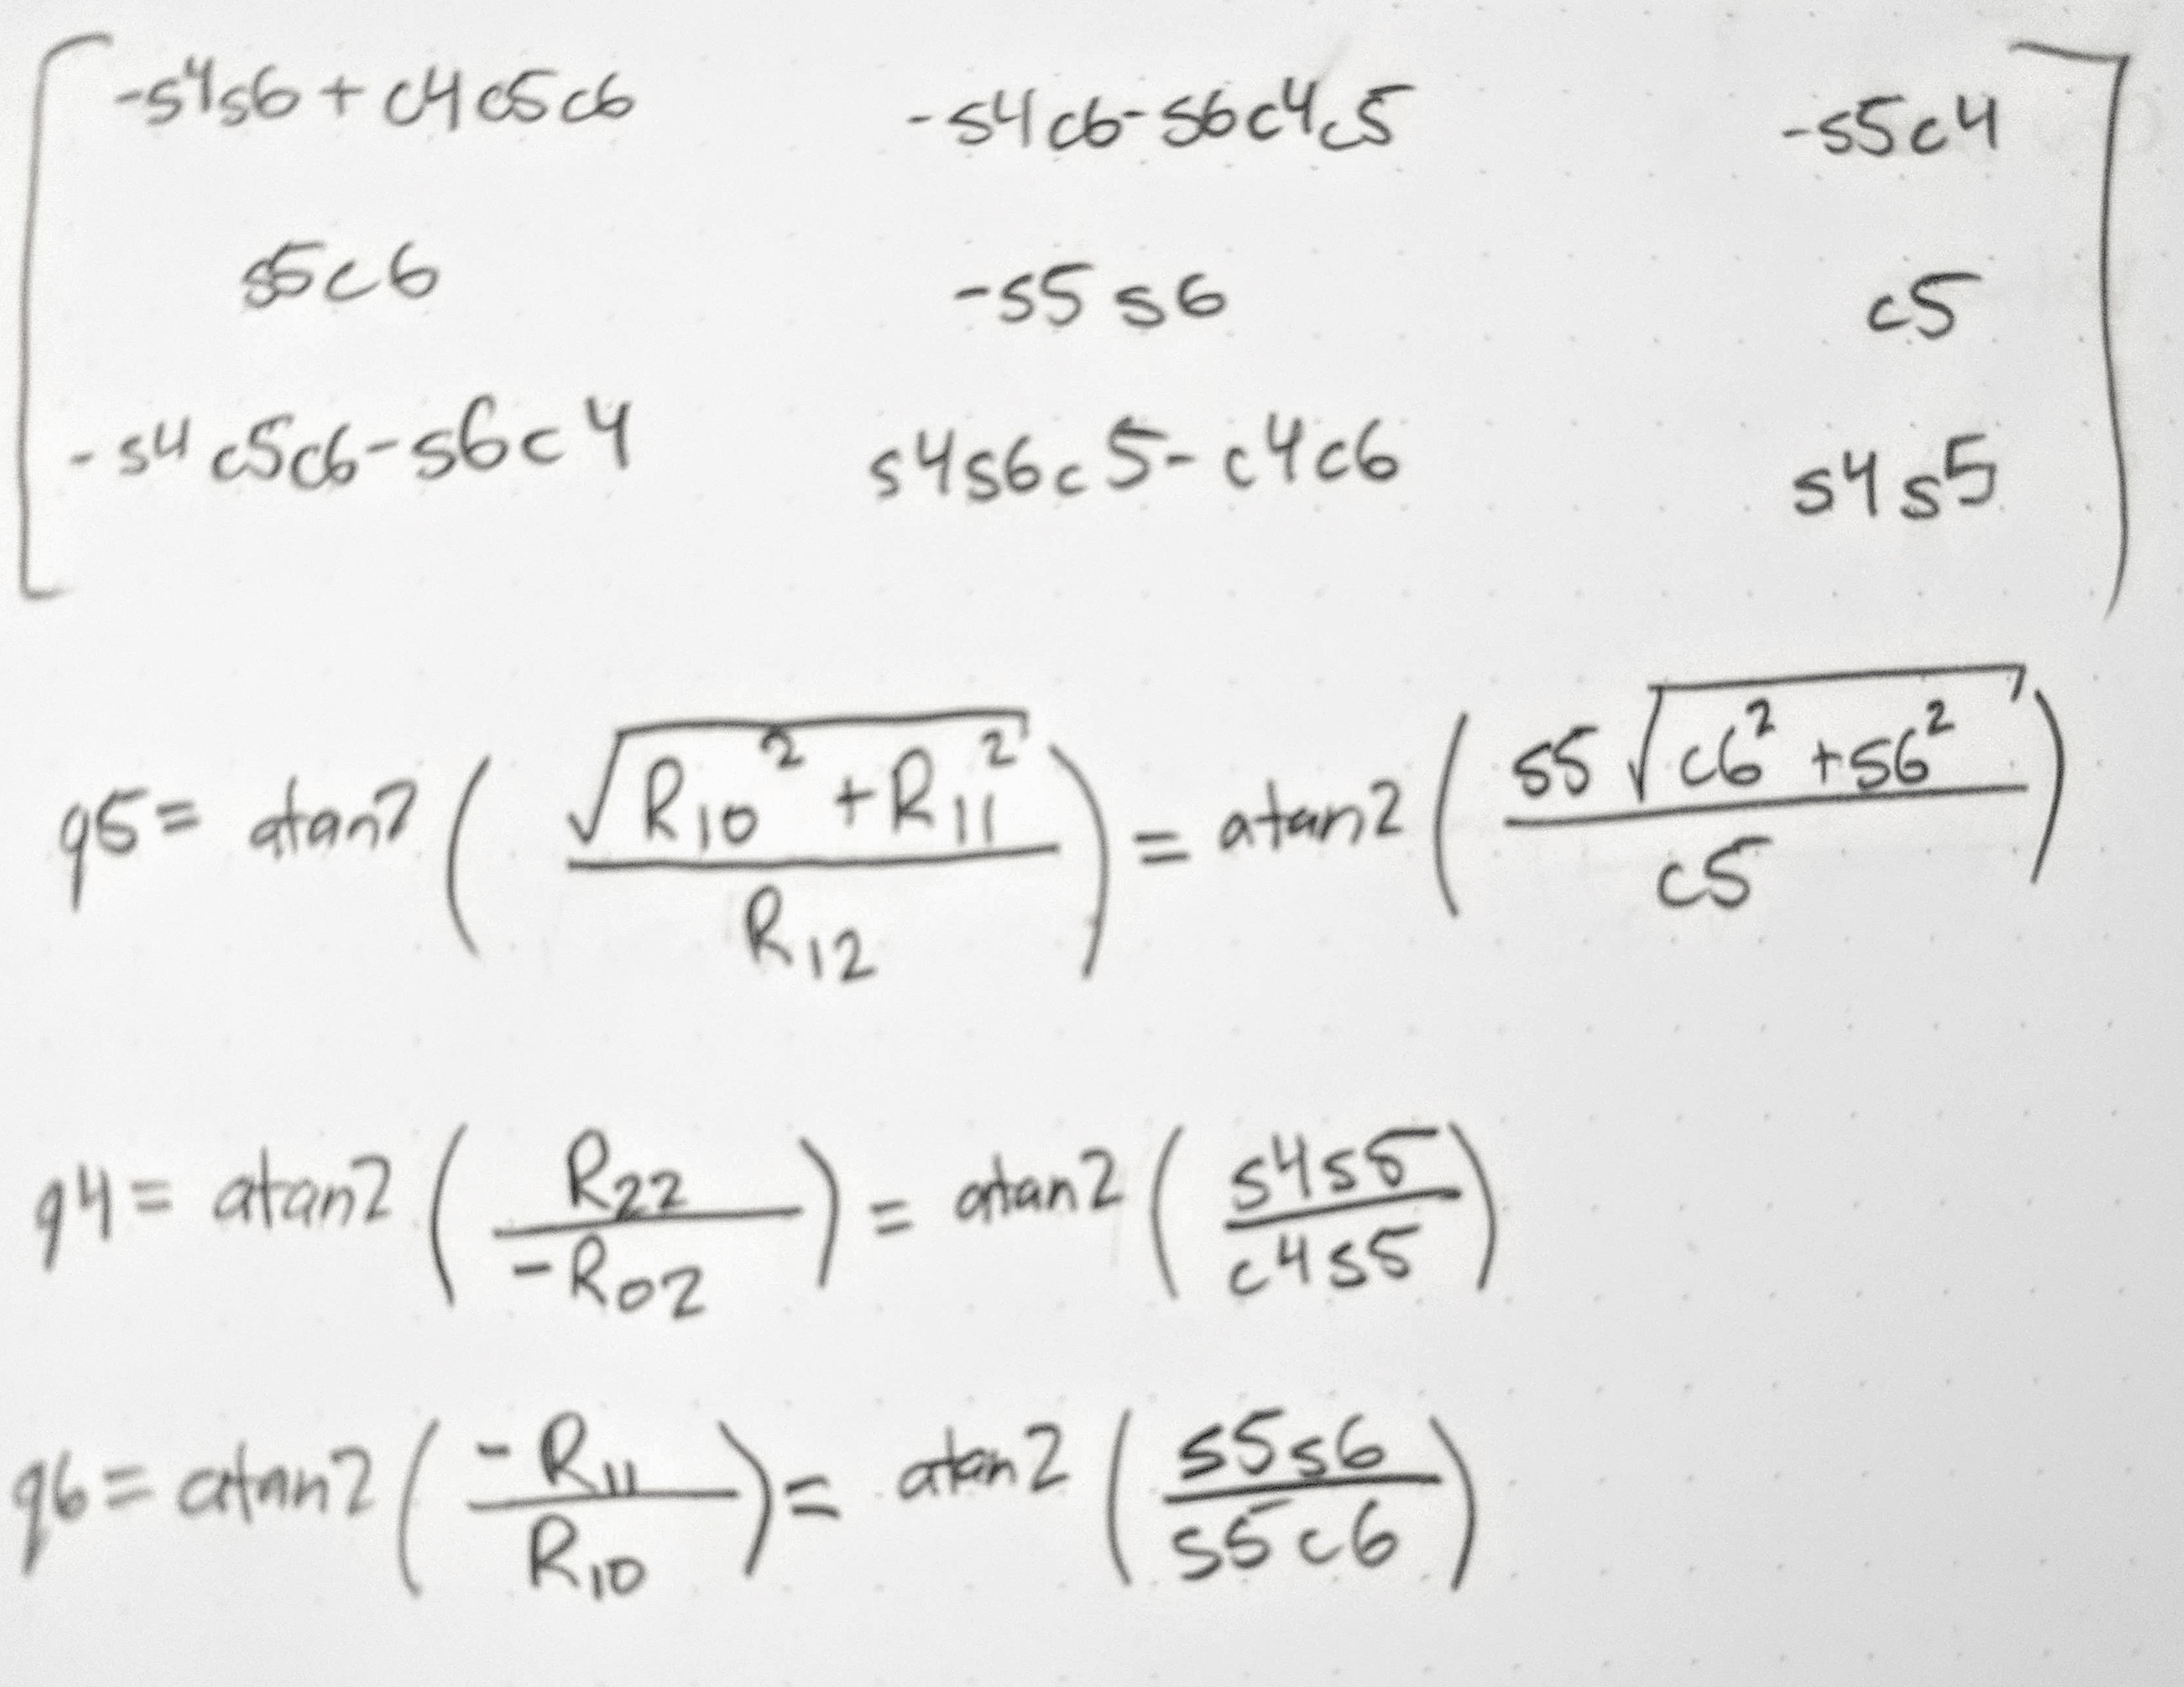 -s4s6 + c4c5c6 -s4c6-s6c4c5 -s5c4
s5c6 -s5 s6 c5
-s4 c5c6-s6c4 s4s6c5-c4c6 s4s5
q5 = atan2 ( √(R10² + R11²) / R12 ) = atan2 ( s5 √(c6² + s6²) / c5 )
q4 = atan2 ( R22 / -R02 ) = atan2 ( s4s5 / c4s5 )
q6 = atan2 ( -R11 / R10 ) = atan2 ( s5s6 / s5c6 )